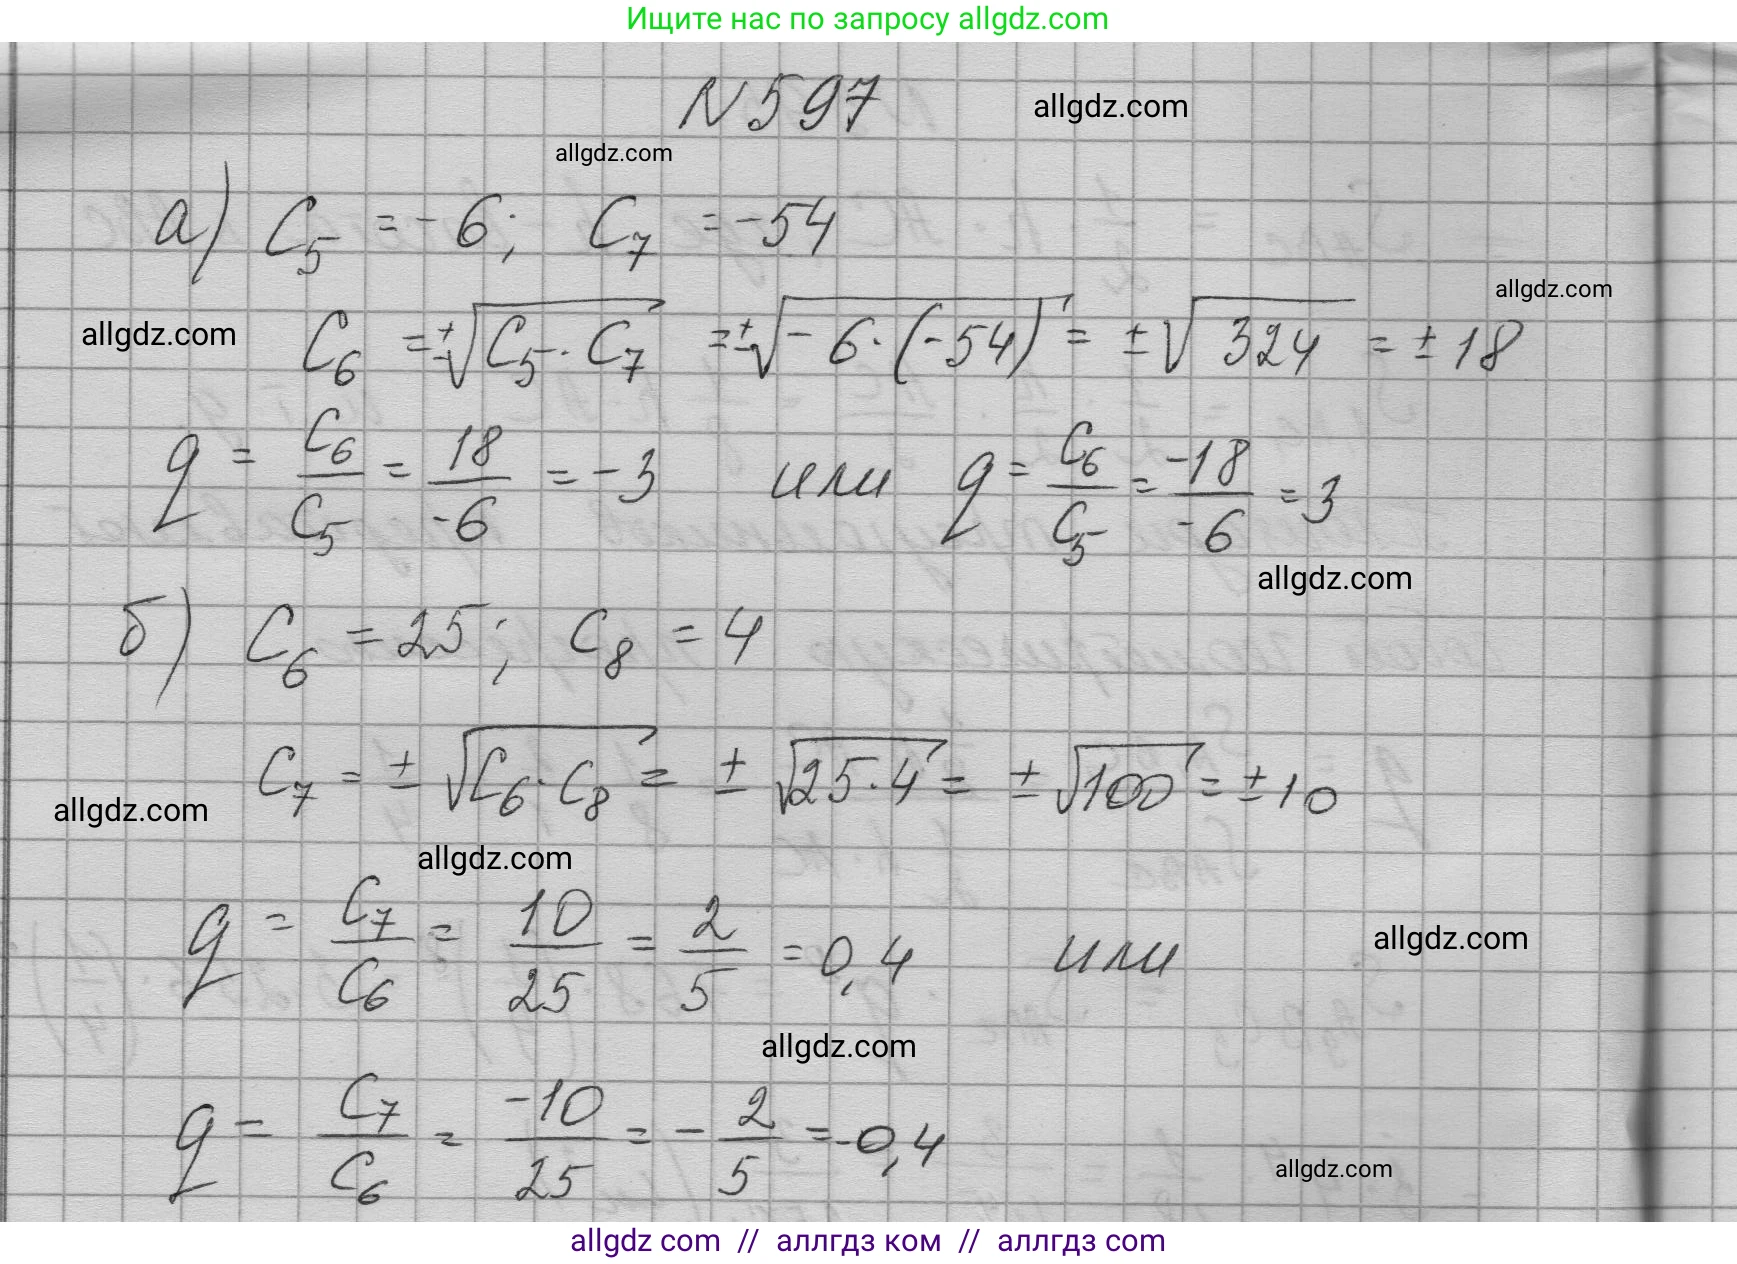 Ищите нас по запросу allgdz.com
N 597
allgdz.com
allgdz.com
а) C₅ = -6; C₇ = -54
allgdz.com
allgdz.com
C₆ = ±√(C₅ · C₇) = ±√(-6·(-54)) = ±√324 = ±18
q = C₆/C₅ = 18/-6 = -3 или q = C₆/C₅ = -18/-6 = 3
allgdz.com
б) C₆ = 25; C₈ = 4
C₇ = ±√(C₆ · C₈) = ±√(25 · 4) = ±√100 = ±10
allgdz.com
allgdz.com
q = C₇/C₆ = 10/25 = 2/5 = 0,4 или
allgdz.com
allgdz.com
q = C₇/C₆ = -10/25 = -2/5 = -0,4
allgdz.com
allgdz com // аллгдз ком // аллгдз com